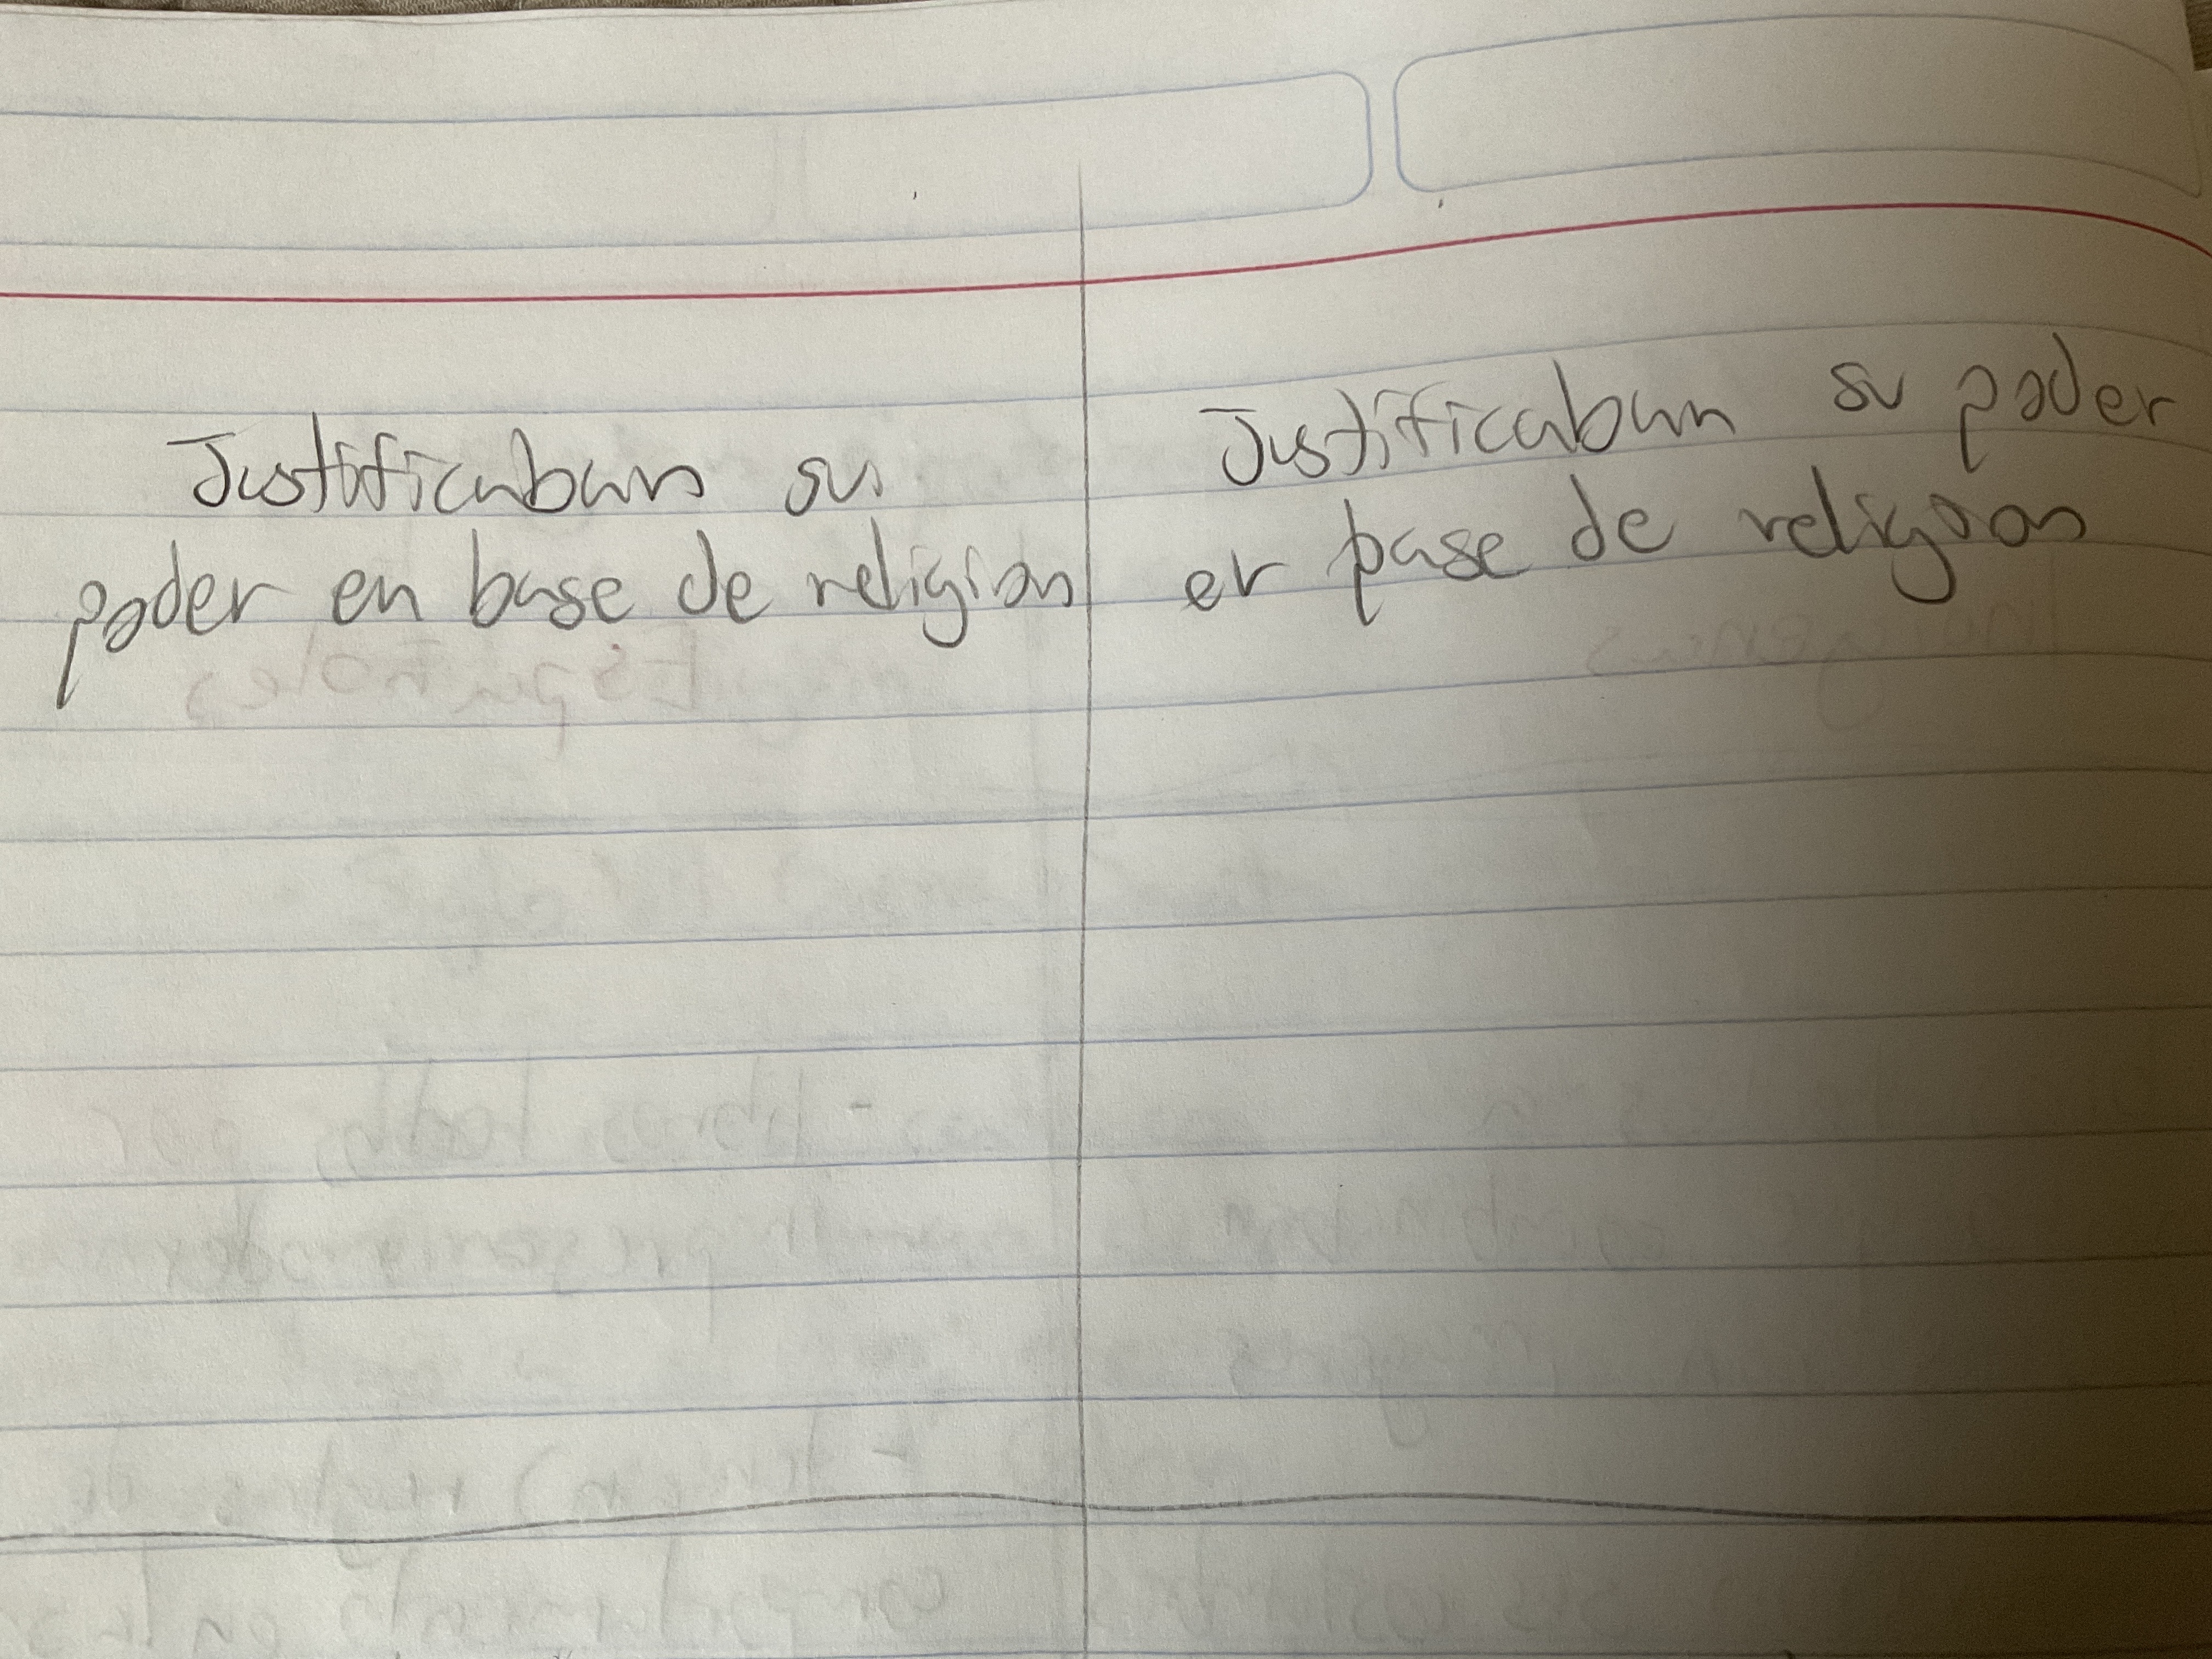 Justificaban su
poder en base de religion
Justificaban su poder
er base de religion